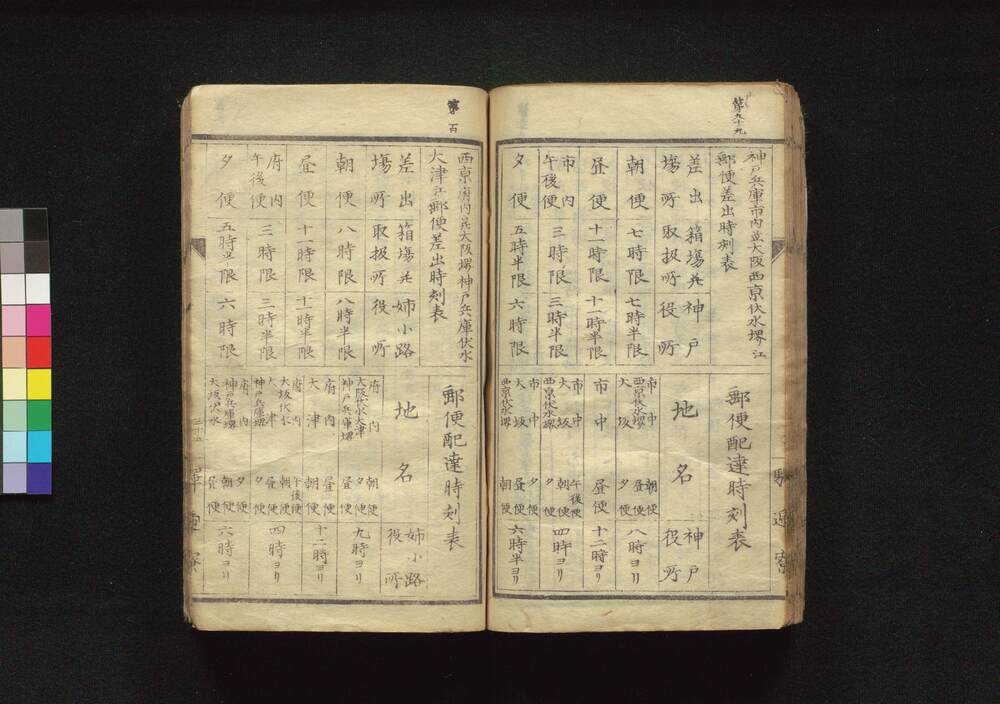 第九十九
神戸兵庫市内並大阪西京伏水堺江
郵便差出時刻表
差出塲所
箱塲並取扱所
神戸役所
朝便
七時限
七時半限
昼便
十一時限
十一時半限
市内午後便
三時限
三時半限
夕便
五時半限
六時限
郵便配達時刻表
地名
神戸役所
市中 朝便
西京伏水堺 昼便
大坂 夕便
八時ヨリ
市中
昼便
十二時ヨリ
市中 午後便
大坂 朝便
西京伏水堺 夕便
四時ヨリ
市中 夕便
大坂 昼便
西京伏水堺 朝便
六時半ヨリ
駅逓寮
第百
西京府内並大阪堺神戸兵庫伏水
大津江郵便差出時刻表
差出塲所
箱塲並取扱所
姉小路役所
朝便
八時限
八時半限
昼便
十一時限
十一時半限
府内午後便
三時限
三時半限
夕便
五時半限
六時限
郵便配達時刻表
地名
姉小路役所
府内 朝便
大阪伏水大津 夕便
神戸兵庫堺 昼便
九時ヨリ
府内 昼便
大津 朝便
十二時ヨリ
府内 午後便
大坂伏水 朝便
大津 昼便
神戸兵庫堺 夕便
四時ヨリ
府内 夕便
神戸兵庫堺 朝便
大坂伏水 昼便
六時ヨリ